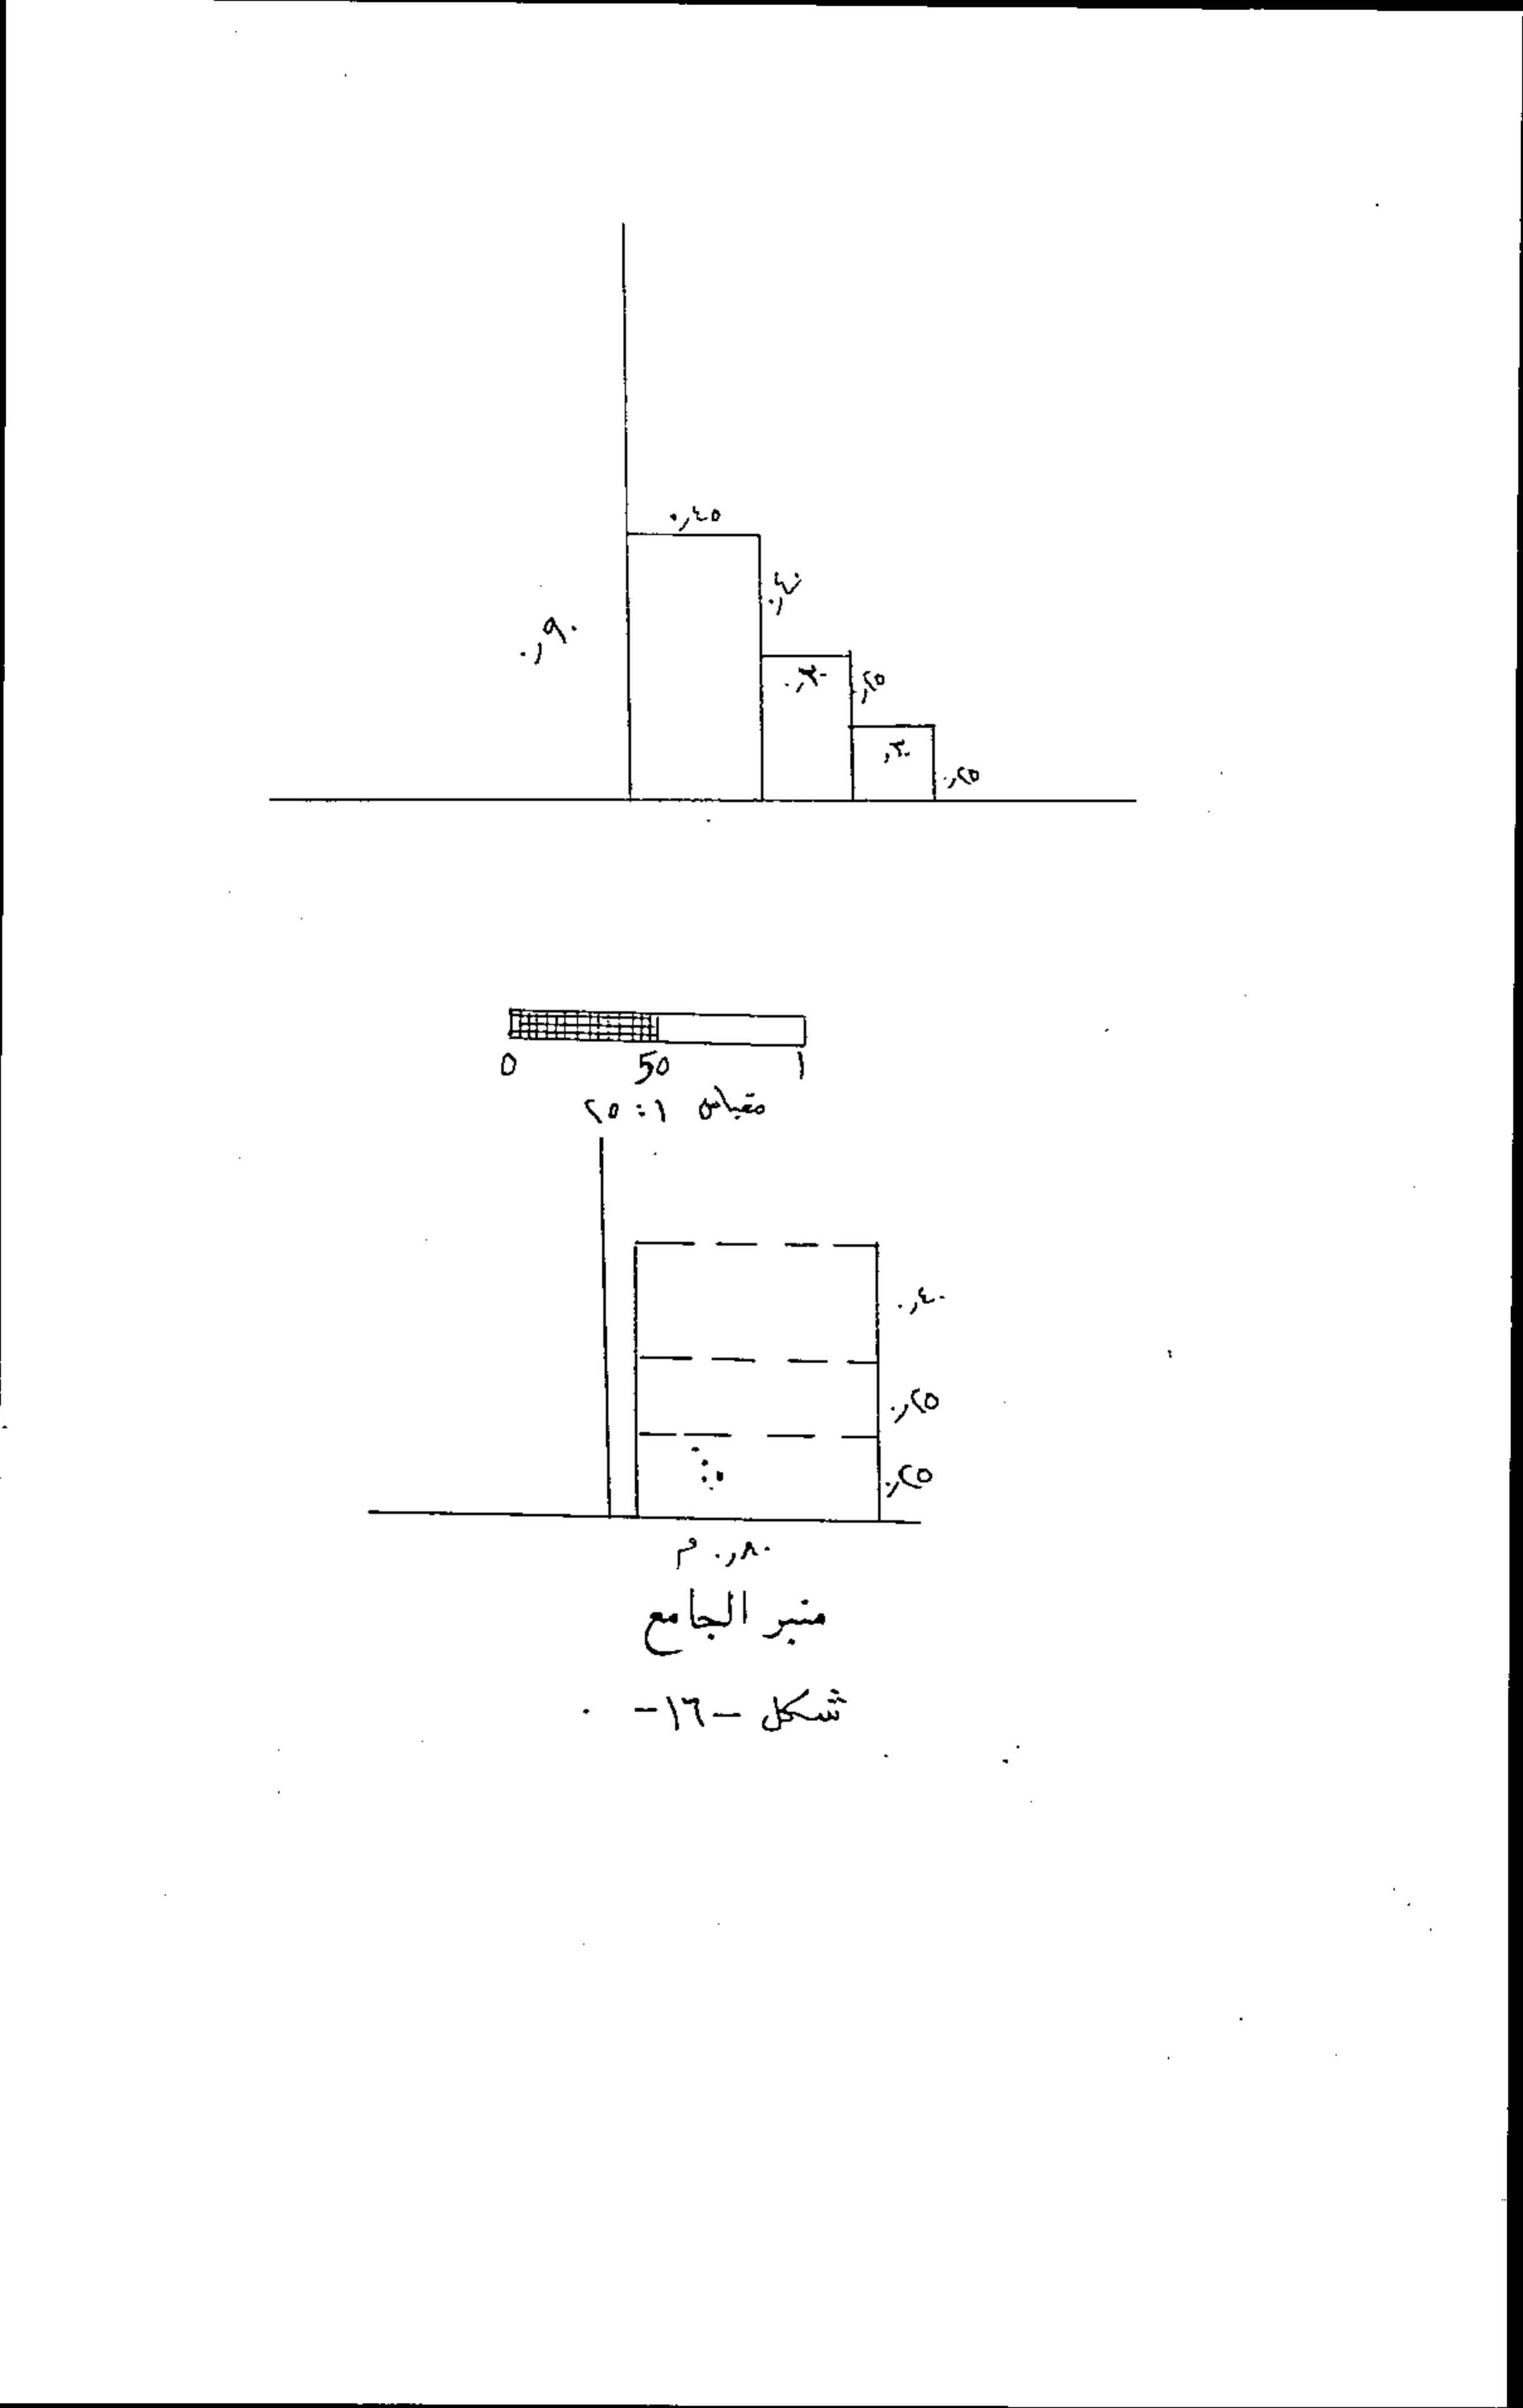 ٠,٤٥
٠,٤٠
٠,٩٠
٠,٣٠
٠,٢٥
٠,٣٠
٠,٢٥
0 50 ١
مقياس ١ : ٢٥
٠,٤٠
٠,٢٥
٠,٢٥
٠,٨٠ م
منبر الجامع
شكل -١٦-